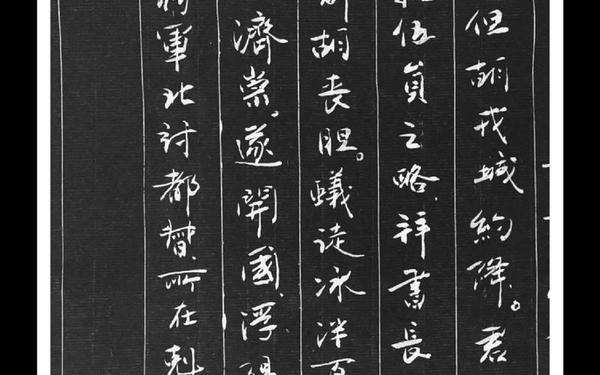 但胡戎城約降。君
伍員之略，拜書長
胡喪胆。蟻徒冰泮百
濟崇。遂開國，浮
將軍北討都督，所在剋